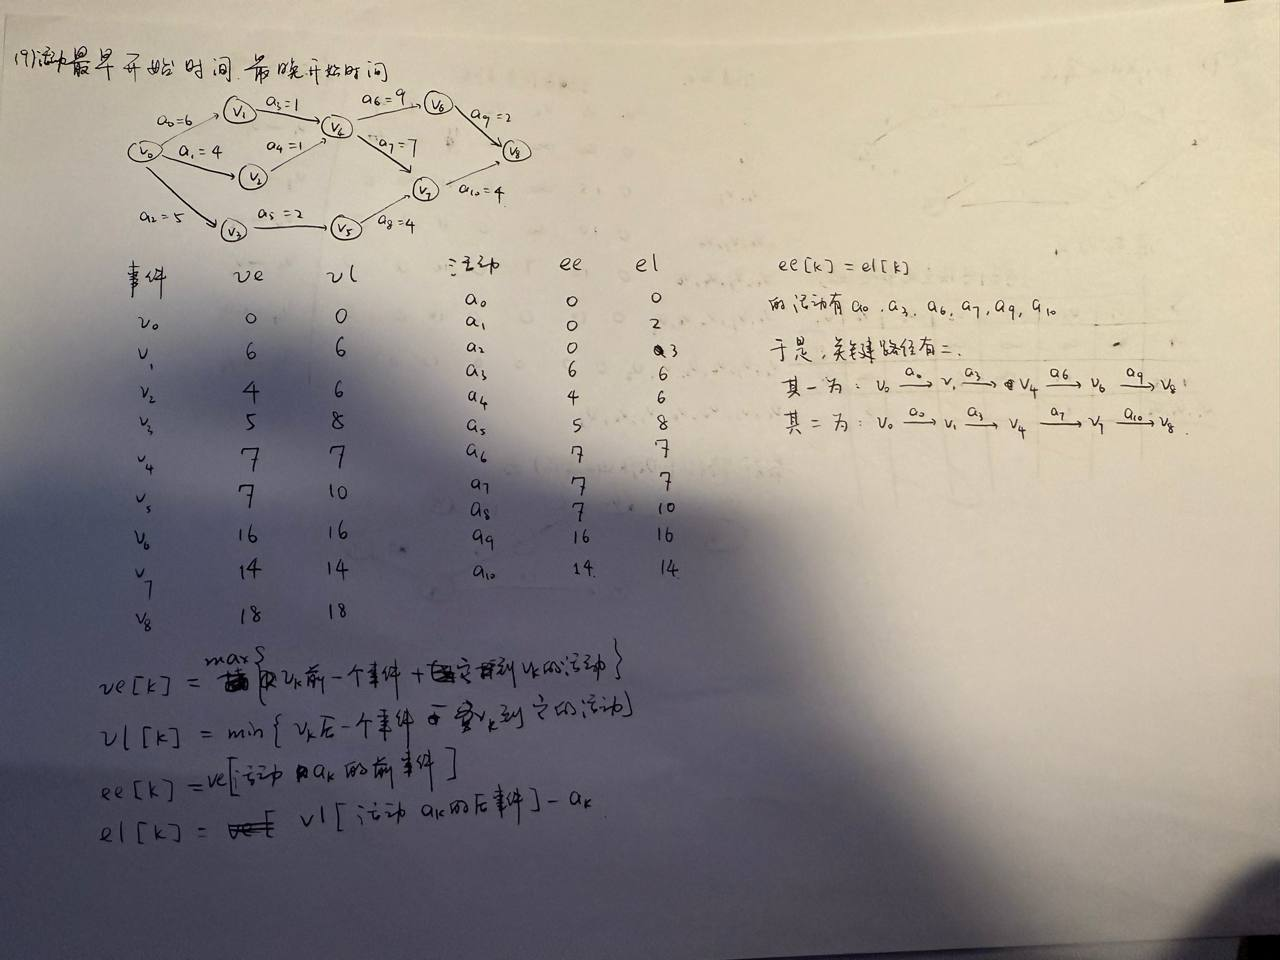 (9)活动最早开始时间、最晚开始时间
v₀ v₁ v₂ v₃ v₄ v₅ v₆ v₇ v₈
a₀=6
a₁=4
a₂=5
a₃=1
a₄=1
a₅=2
a₆=9
a₇=7
a₈=4
a₉=2
a₁₀=4
事件 ve vl
v₀ 0 0
v₁ 6 6
v₂ 4 6
v₃ 5 8
v₄ 7 7
v₅ 7 10
v₆ 16 16
v₇ 14 14
v₈ 18 18
活动 ee el
a₀ 0 0
a₁ 0 2
a₂ 0 3
a₃ 6 6
a₄ 4 6
a₅ 5 8
a₆ 7 7
a₇ 7 7
a₈ 7 10
a₉ 16 16
a₁₀ 14 14
ee[k]=el[k]
的活动有a₀、a₃、a₆、a₇、a₉、a₁₀
于是,关键路径有二.
其一为: v₀ a₀→ v₁ a₃→ v₄ a₆→ v₆ a₉→ v₈
其二为: v₀ a₀→ v₁ a₃→ v₄ a₇→ v₇ a₁₀→ v₈
ve[k] = max{vₖ前一个事件+它到vₖ的活动}
vl[k] = min{vₖ后一个事件-vₖ到它的活动}
ee[k]=ve[活动aₖ的前事件]
el[k] = vl[活动aₖ的后事件]-aₖ